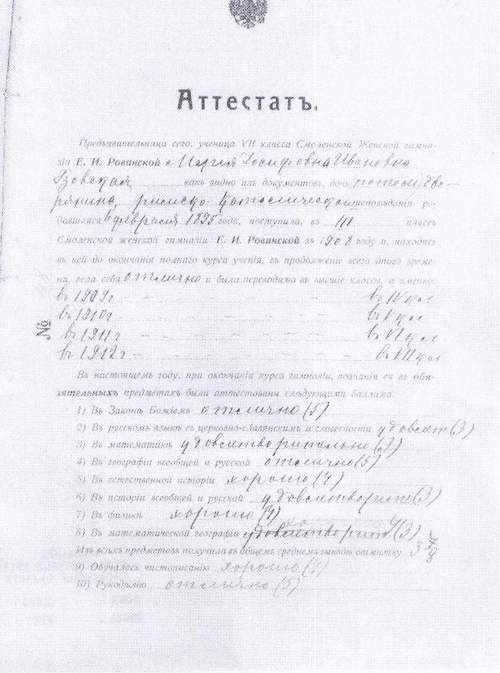 Аттестатъ.
Предъявительница сего, ученица VII класса Смоленской Женской гимна-
зіи Е. И. Ровинской Марія Іосифовна Ивановна
Гзовская какъ видно изъ документовъ, дочь потом. дво-
рянина, римско католическаго исповѣданія ро-
дившаяся 6 февраля 1895 года, поступила, въ III классъ
Смоленской женской гимназіи Е. И. Ровинской въ 1908 году и, находясь
въ ней до окончанія полнаго курса ученія, въ продолженіе всего этого време-
ни, вела себя отлично и была переводима въ высшіе классы, а именно:
въ 1909 г въ IV кл
въ 1910 г въ V кл
въ 1911 г въ VI кл
въ 1912 г въ VII кл
№
Въ настоящемъ году, при окончаніи курса гимназіи, познанія ея въ обя-
зательныхъ предметахъ были аттестованы слѣдующими баллами:
1) Въ Законѣ Божіемъ отлично (5)
2) Въ русскомъ языкѣ съ церковно-славянскимъ и словесности удовлет (3)
3) Въ математикѣ удовлетворительно (3)
4) Въ географіи всеобщей и русской отлично (5)
5) Въ естественной исторіи хорошо (4)
6) Въ исторіи всеобщей и русской удовлетворит (3)
7) Въ физикѣ хорошо (4)
8) Въ математической географіи удовлетворит (3)
Изъ всѣхъ предметовъ получила въ общемъ среднемъ выводѣ отмѣтку 3
9) Обучалась чистописанію хорошо (4)
10) Рукодѣлію отлично (5)